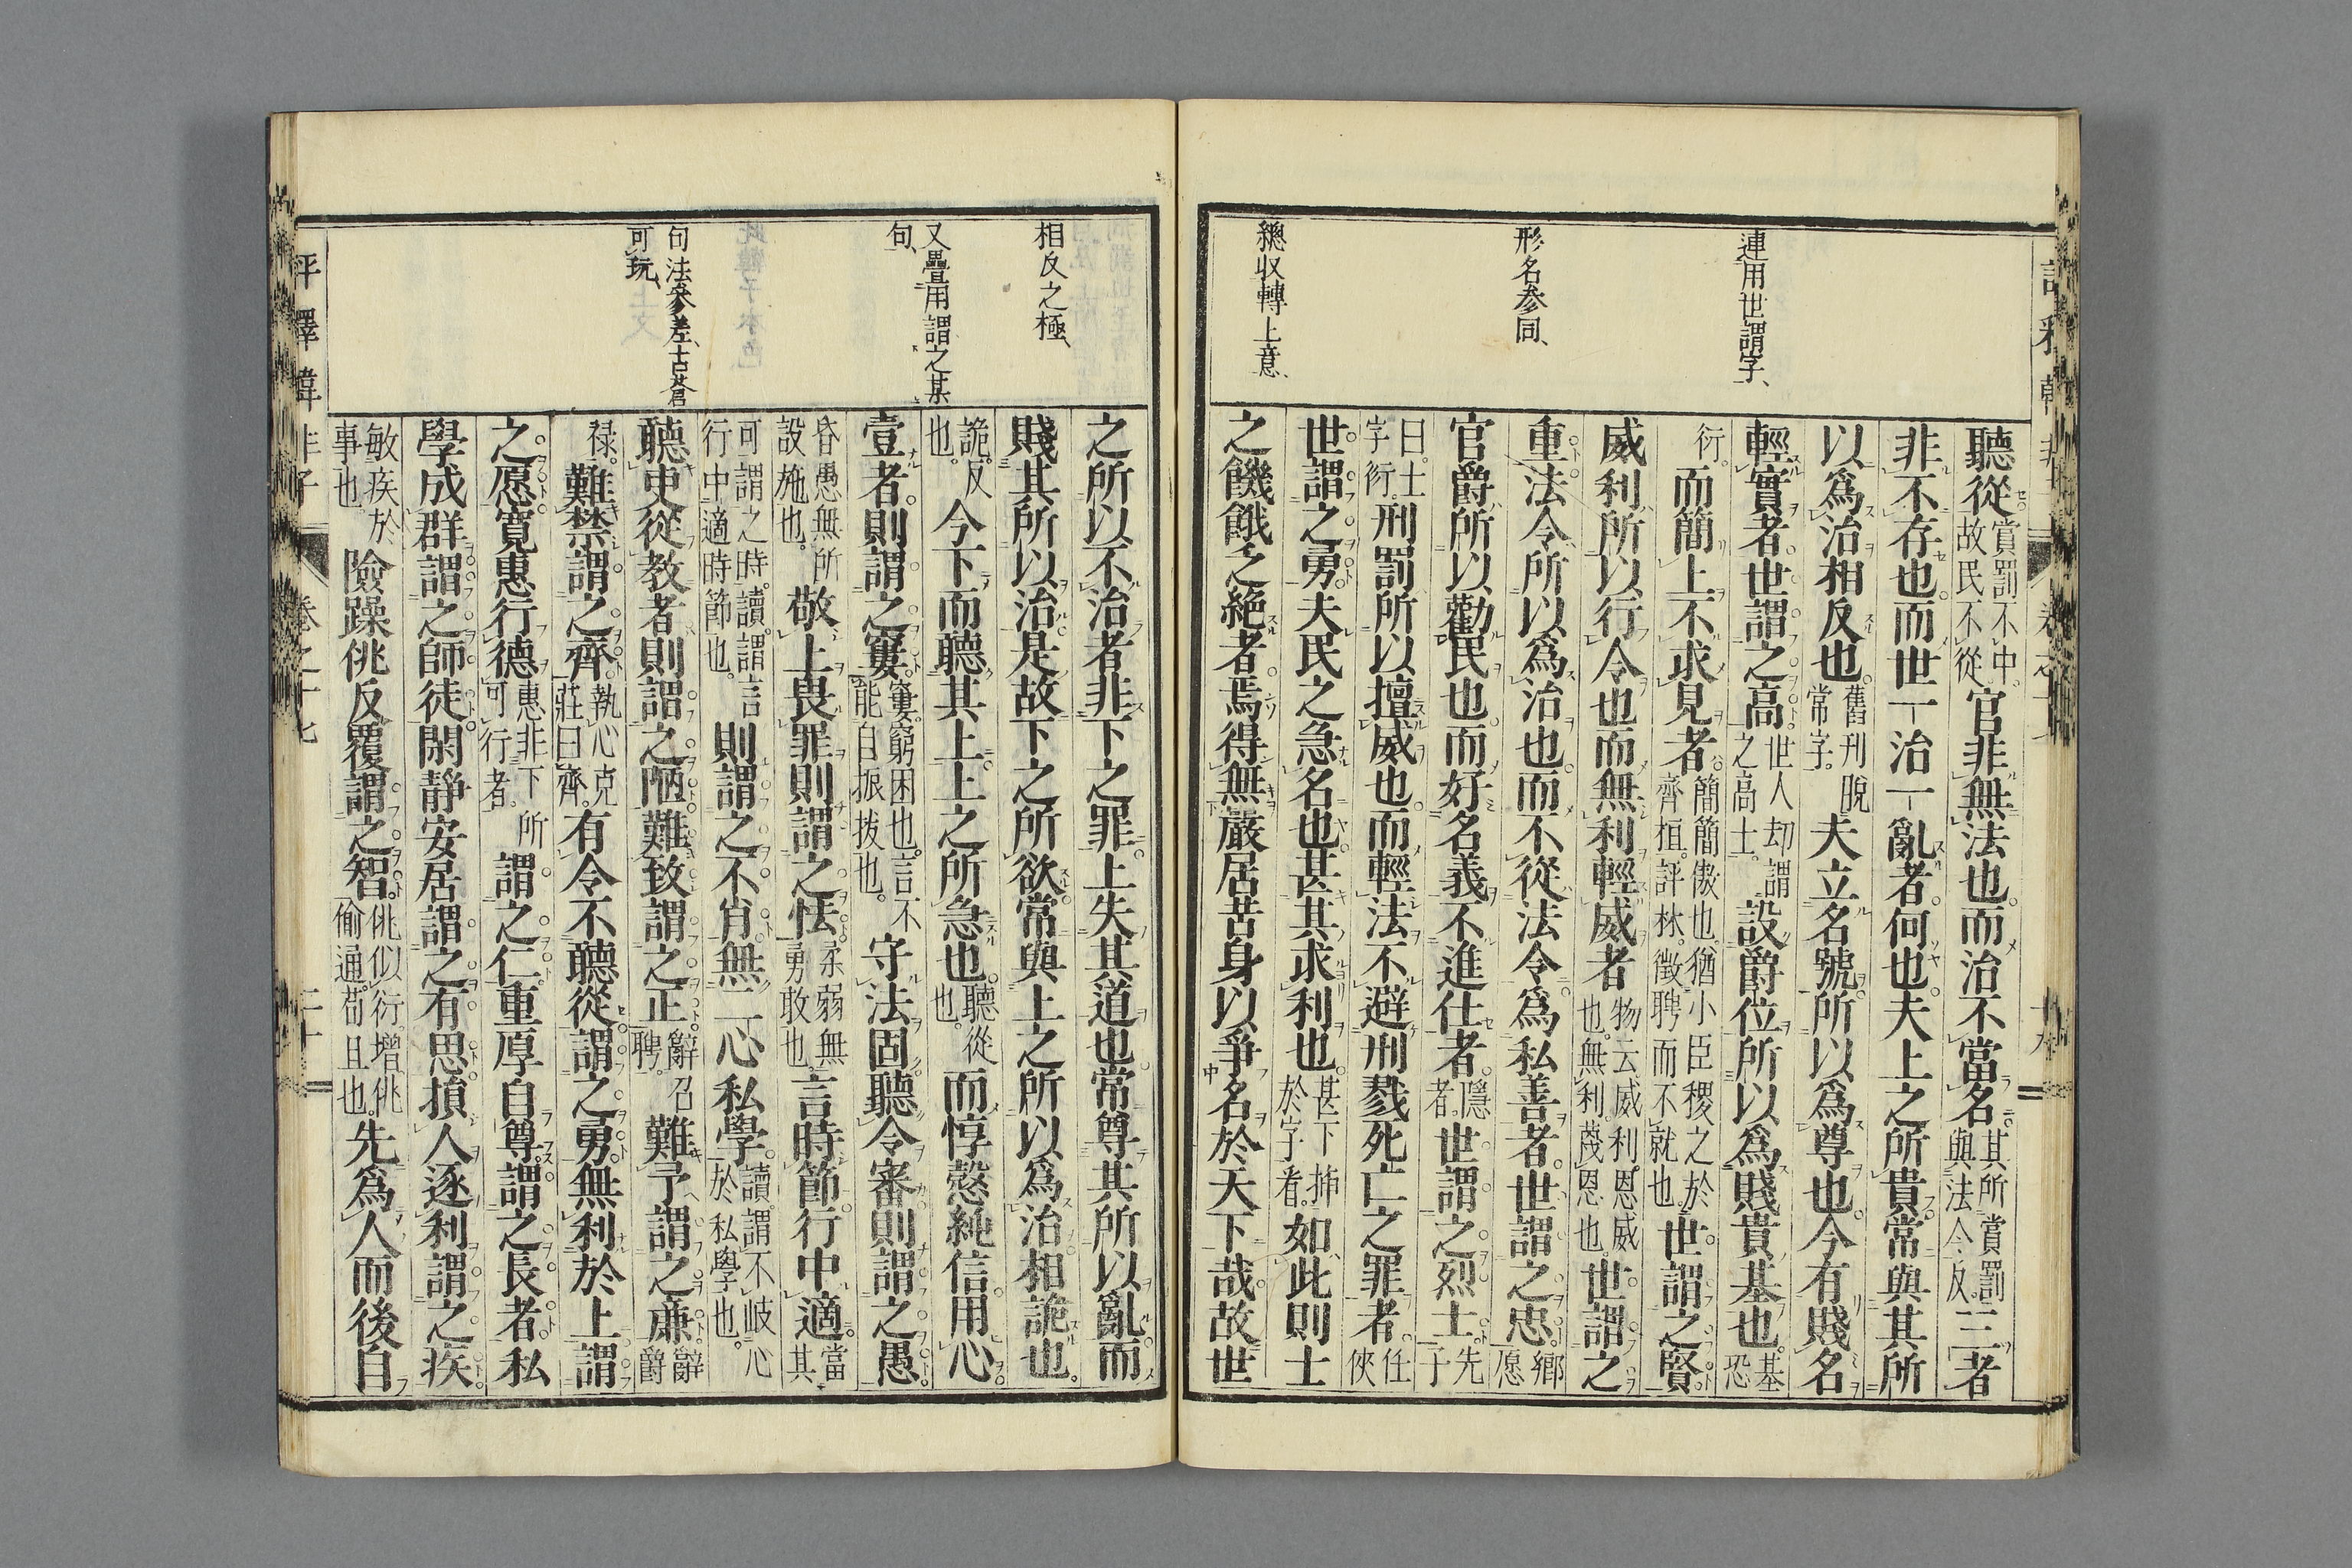 連用世謂字、
形名參同、
總収轉上意、
聽從賞罰不中。故民不從官非無法也而治不當名其所賞罰與法令反。三者
非不存也而世一治一亂者何也夫上之所貴常與其所
以爲治相反也舊刋脫常字。夫立名號所以爲尊也今有賤名
輕實者世謂之高世人却謂之高士。設爵位所以爲賤貴基也基恐
衍。而簡上不求見者簡簡傲也。猶小臣稷之於齊桓。評林。徵聘而不就也世謂之賢
威利所以行令也而無利輕威者物云威利。恩威也。無利。蔑恩也。世謂之
重法令所以爲治也而不從法令爲私善者世謂之忠鄉愿
官爵所以勸民也而好名義不進仕者隱者。世謂之烈士先于
曰士字衍。刑罰所以擅威也而輕法不避刑戮死亡之罪者任俠
世謂之勇夫民之急名也甚其求利也甚下拂於字看。如此則士
之饑餓乏絕者焉得無巖居苦身以爭名於天下哉故世
相反之極、
又疊用謂之某
句、
句法參差、古蒼
可玩、
之所以不治者非下之罪上失其道也常尊其所以亂而
賤其所以治是故下之所欲常與上之所以爲治相詭也
詭。反也。今下而聽其上上之所急也聽從也。而惇愨純信用心
壹者則謂之窶窶。窮困也。言不能自振拔也。守法固聽令審則謂之愚
昏愚無所設施也。敬上畏罪則謂之怯柔弱無勇敢也。言時節行中適當其
可謂之時。讀。謂言行中適時節也。則謂之不肖無二心私學讀。謂不岐心於私學也。
聽吏從教者則謂之陋難致謂之正辭召聘。難予謂之廉辭爵
禄。難禁謂之齊執心克莊曰齊。有令不聽從謂之勇無利於上謂
之愿寬惠行德惠非下所可行者。謂之仁重厚自尊謂之長者私
學成群謂之師徒閑靜安居謂之有思損人逐利謂之疾
敏疾於事也。險躁佻反覆謂之智佻似衍。增佻偷通。苟且也。先爲人而後自
評釋韓非子
卷之十七
二十